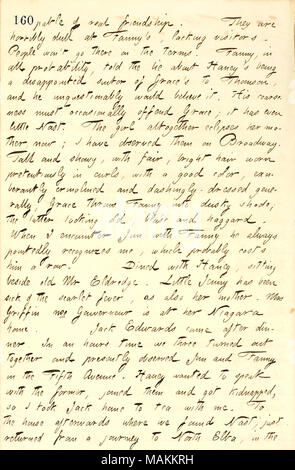 160 pable of real friendship. They are
horribly dull at Fanny's, lacking visitors.
People won't go there on the terms. Fanny, in
all probability, told the lie about Haney's being
a disappointed suitor of Grace's to Thomson
and he unquestionably would believe it. His coarse-
ness must occasionally offend Grace; it has even
little Nast. The girl altogether eclipses her mo-
ther now; I have observed them on Broadway.
Tall and showy, with fair, bright hair worn
pretentiously in curls, with a good color, exu-
berantly crinolined and dashingly-dressed gene-
rally Grace throws Fanny into dusky shade,
the latter looking old, blasé and haggard.
When I encounter Jim with Fanny he always
pointedly recognizes me, which probably costs
him a row. Dined with Haney, sitting
beside old Mr Eldredge. Little Jenny has been
sick of the scarlet fever, as also her mother. Mrs
Griffin née Gouverneur is at her Niagara
home. Jack Edwards came after din-
ner. In an hours time we three turned out
together and presently observed Jim and Fanny
in the Fifth Avenue. Haney wanted to speak
with the former, joined them and got kidnapped,
so I took Jack home to tea with me. To
the house afterwards where we found Nast, just
returned from a journey to North Elba, in the
alamy
Image ID: MAKKRH
www.alamy.com